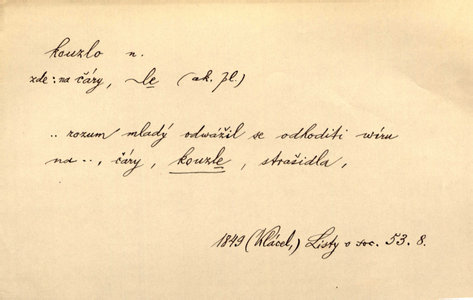 kouzlo n.
zde: na čáry, ~le (ak. pl.)
.. rozum mladý odwážil se odhoditi wíru
na .., čáry, kouzle, strašidla,
1849 (Klácel,) Listy o soc. 53. 8.